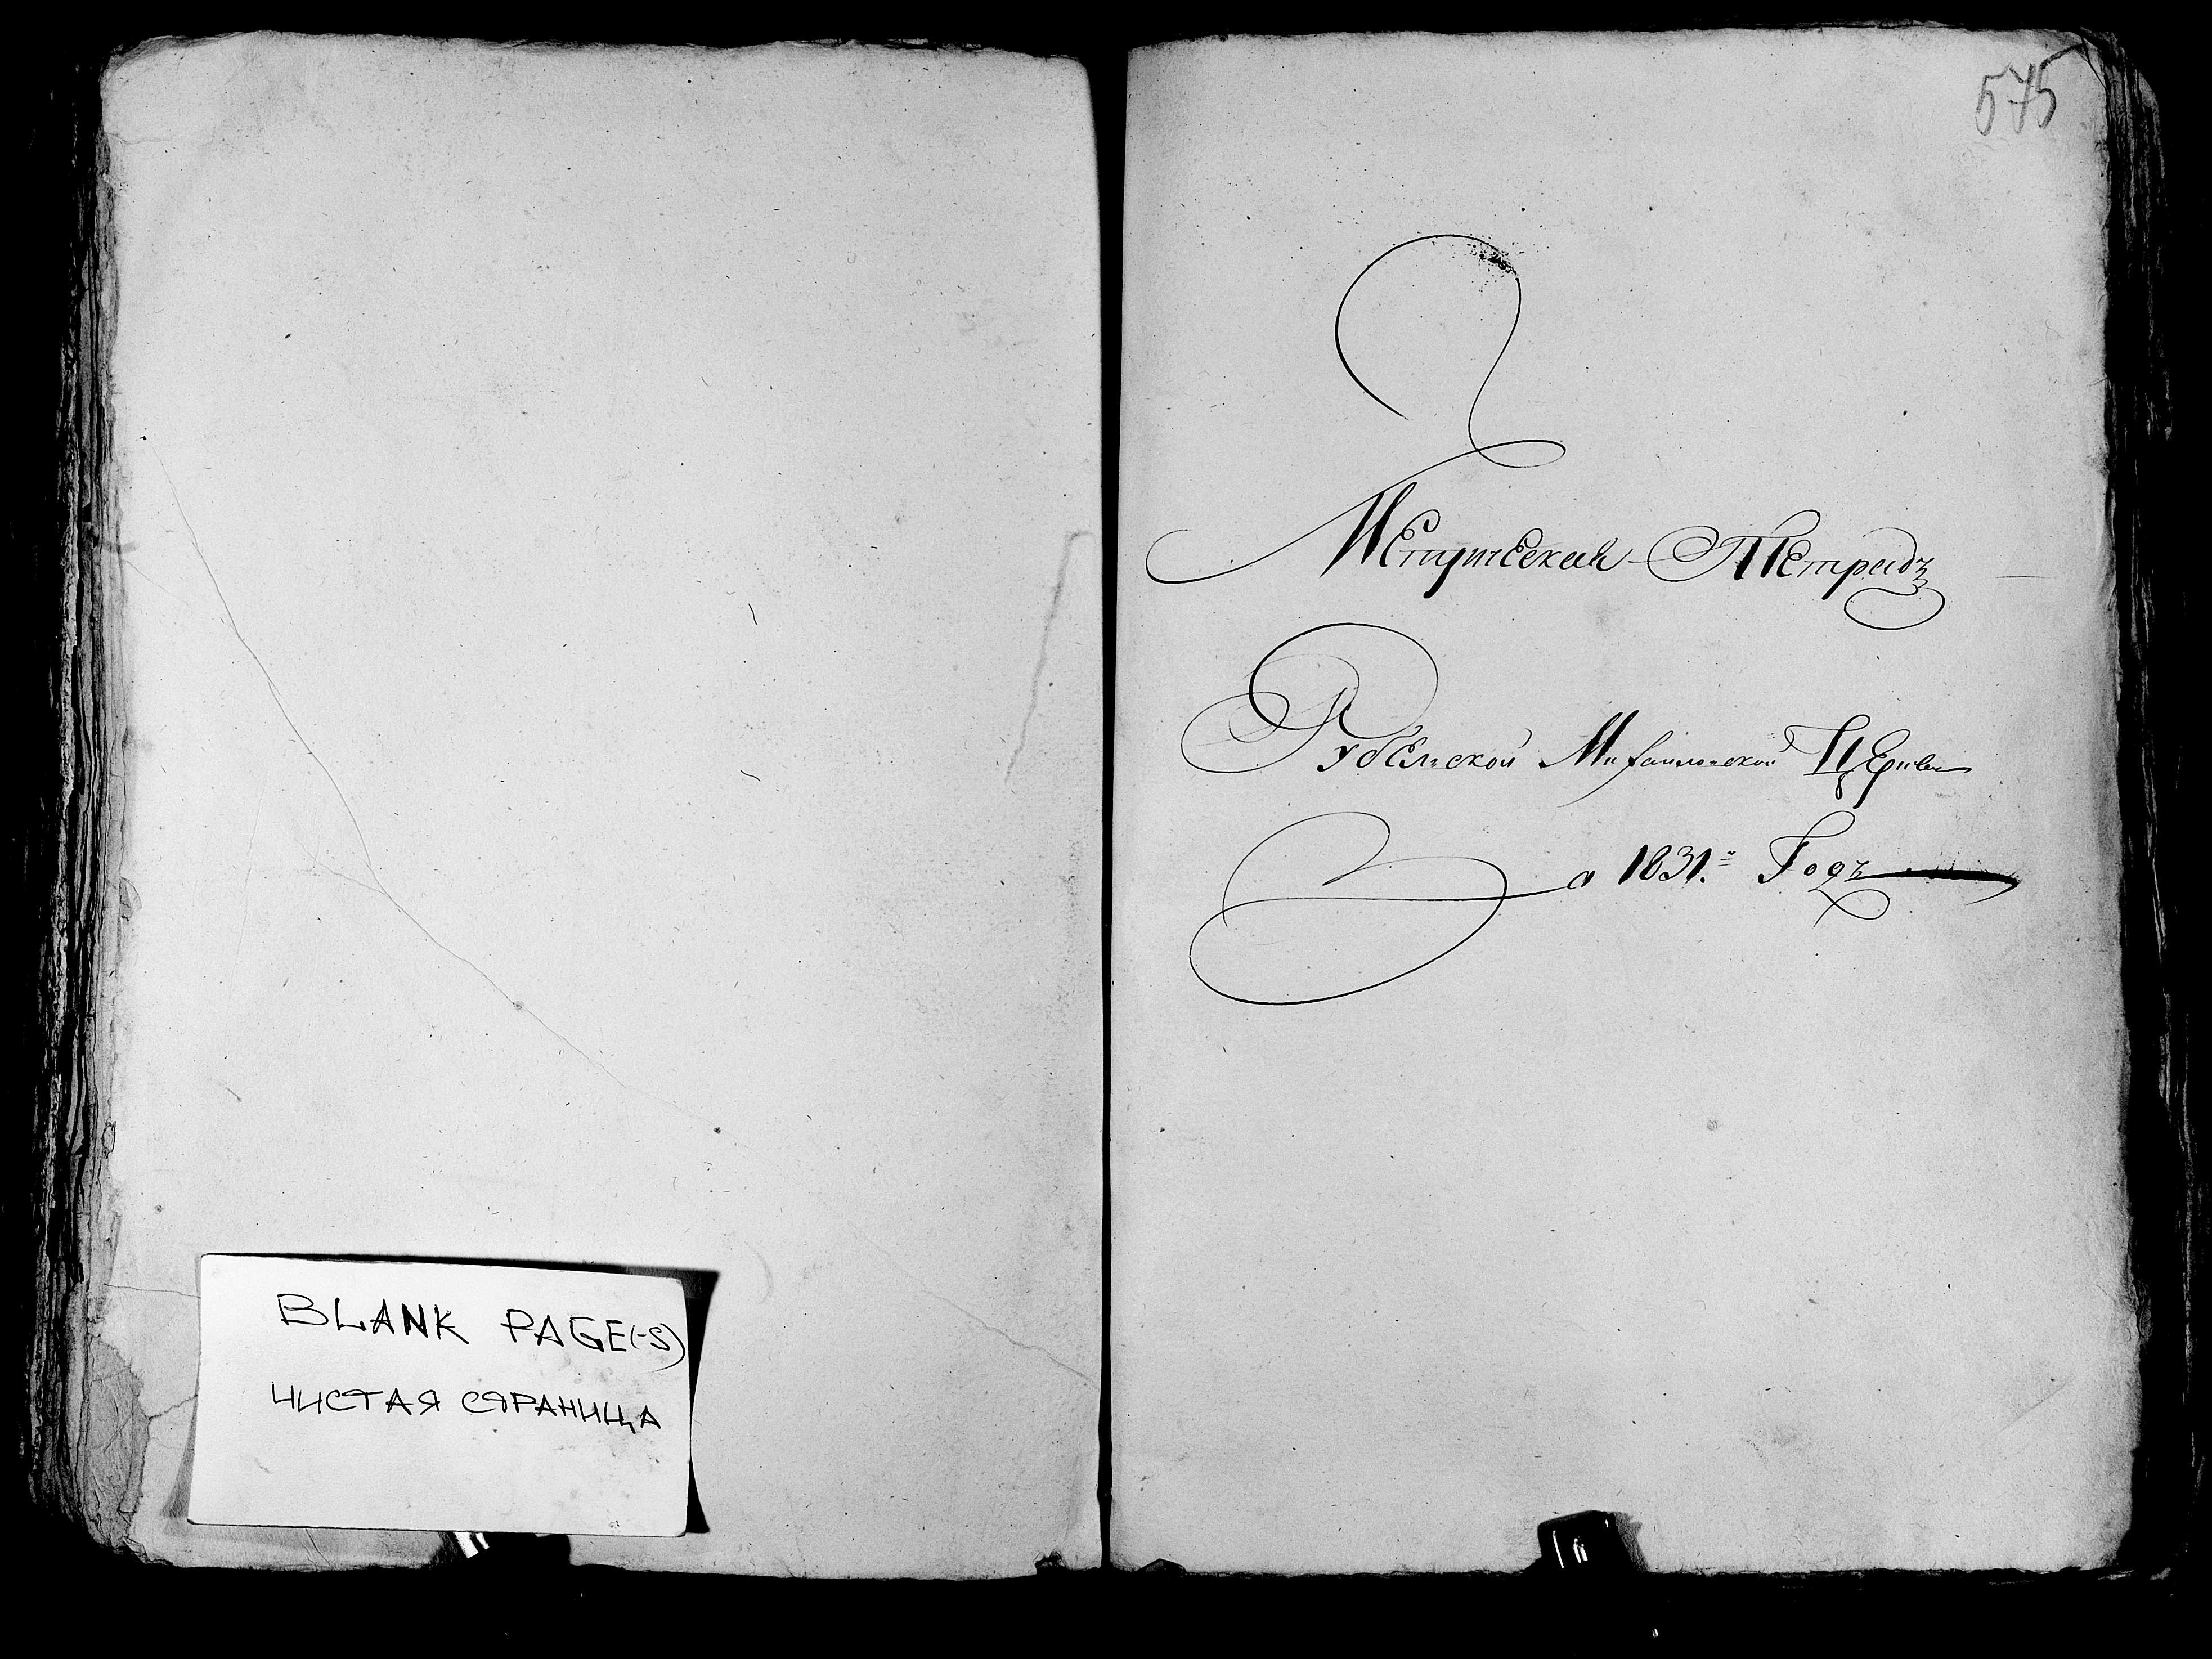 BLANK PAGE(-S)
ЧИСТАЯ СТРАНИЦА
575
Метрическая Тетрадъ
Рубельской Михаиловской Церкви
За 1831.= Годъ